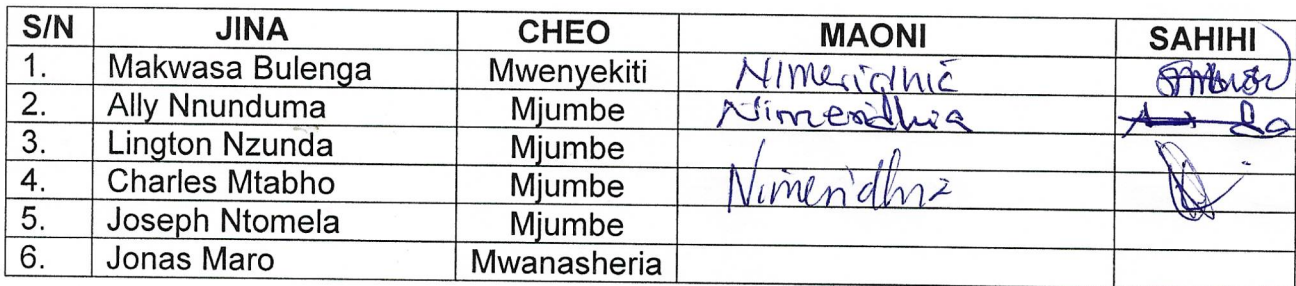 S/N JINA CHEO MAONI SAHIHI
1. Makwasa Bulenga Mwenyekiti Nimeridhia
2. Ally Nnunduma Mjumbe Nimeridhia
3. Lington Nzunda Mjumbe
4. Charles Mtabho Mjumbe Nimeridhia
5. Joseph Ntomela Mjumbe
6. Jonas Maro Mwanasheria